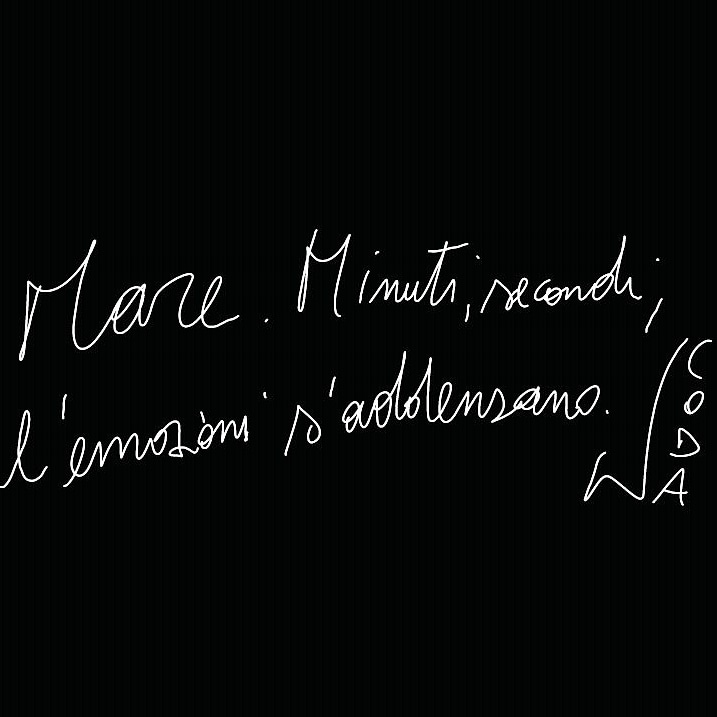 Mare. Minuti, secondi,
l'emozioni s'addensano.
CODA